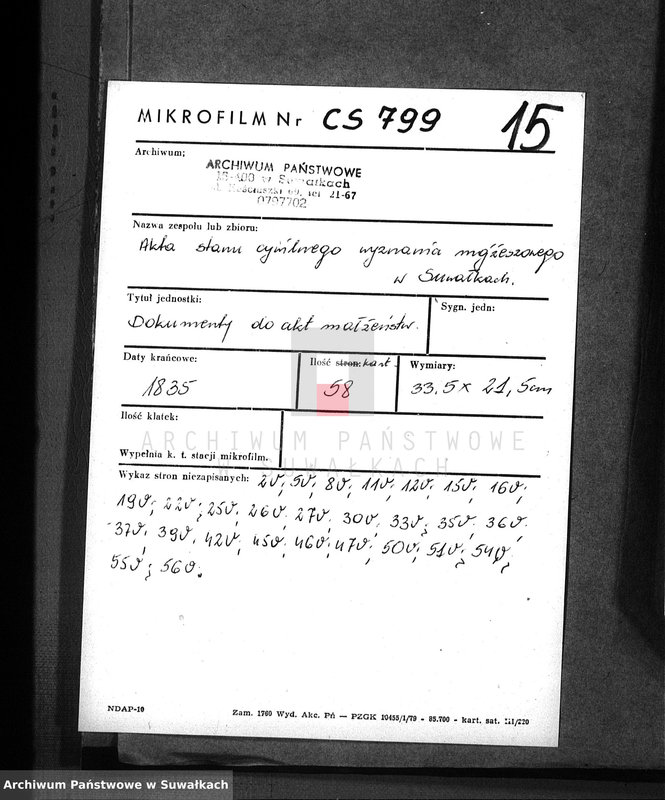 MIKROFILM Nr CS 799 15
Archiwum:
ARCHIWUM PAŃSTWOWE
16-400 w Suwałkach
ul. Kościuszki 69, tel 21-67
0797702
Nazwa zespołu lub zbioru:
Akta stanu cywilnego wyznania mojżeszowego
w Suwałkach.
Tytuł jednostki: Sygn. jedn:
Dokumenty do akt małżeństw.
Daty krańcowe: Ilość stron: kart Wymiary:
1835 58 33,5 x 21,5cm
Ilość klatek:
Wypełnia k. t. stacji mikrofilm.
ARCHIWUM PAŃSTWOWE
W SUWAŁKACH
Wykaz stron niezapisanych: 2v; 5v; 8v; 11v; 12v; 15v; 16v;
19v; 22v; 25v; 26v; 27v; 30v; 33v; 35v; 36v;
37v; 39v; 42v; 45v; 46v; 47v; 50v; 51v; 54v;
55v; 56v.
NDAP-10
Zam. 1760 Wyd. Akc. Pń — PZGK 10455/1/79 - 85.700 - kart. sat. III/220
Archiwum Państwowe w Suwałkach